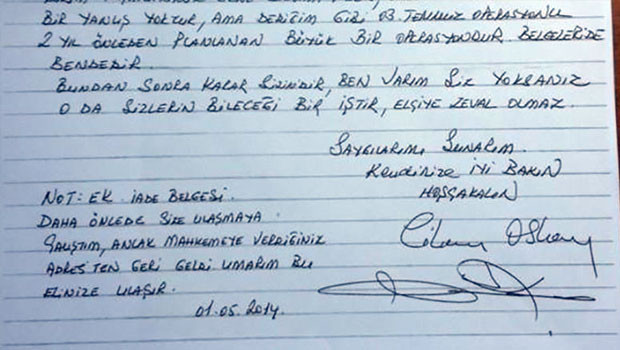 BİR YANLIŞ YOKTUR, AMA DEDİĞİM GİBİ 03 TEMMUZ OPERASYONU
2 YIL ÖNCEDEN PLANLANAN BÜYÜK BİR OPERASYONDUR BELGELERİDE
BENDEDİR.
BUNDAN SONRA KARAR SİZİNDİR, BEN VARIM SİZ YOKSANIZ
O DA SİZLERİN BİLECEĞİ BİR İŞTİR, ELÇİYE ZEVAL OLMAZ.
SAYGILARIMI SUNARIM.
KENDİNİZE İYİ BAKIN
HOŞÇAKALIN
NOT: EK. İADE BELGESİ.
DAHA ÖNCEDE SİZE ULAŞMAYA
ÇALIŞTIM, ANCAK MAHKEMEYE VERDİĞİNİZ
ADRES'TEN GERİ GELDİ UMARIM BU
ELİNİZE ULAŞIR.
01.05.2014.